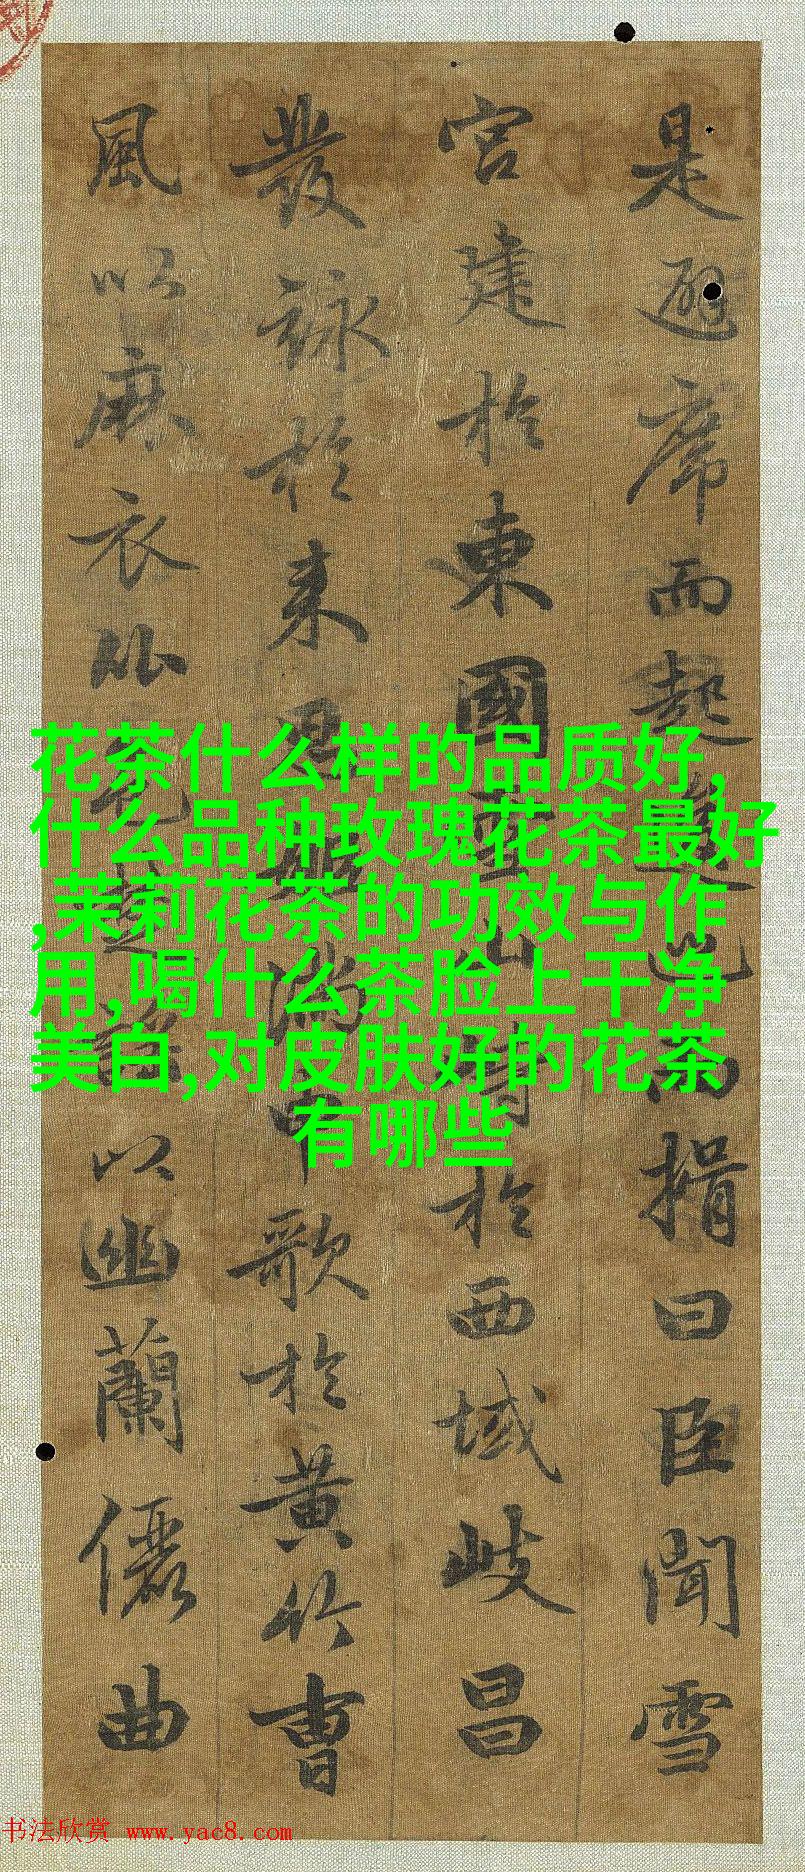 花茶什么样的品质好,
什么品种玫瑰花茶最好
,茉莉花茶的功效与作
用,喝什么茶脸上干净
美白,对皮肤好的花茶
有哪些
是避席而起逡巡而揖曰臣聞雪
宮建於東國雪山峙於西域岐昌
發詠於來思姬滿申歌於黃竹曹
風以麻衣比色楚謠以幽蘭儷曲
书法欣赏 www.yac8.com